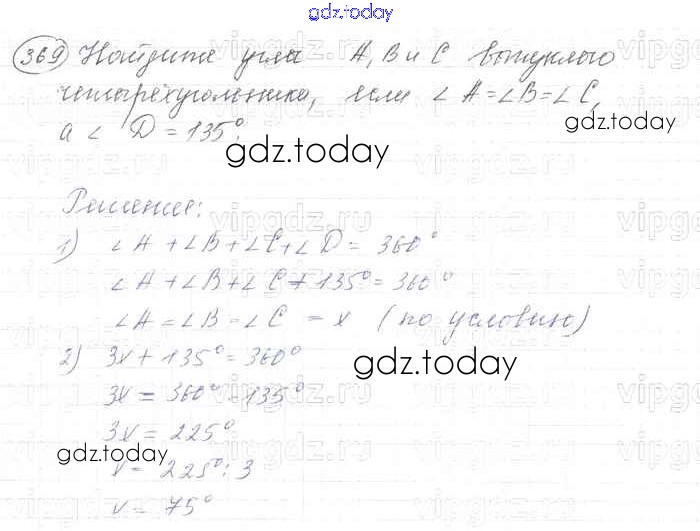 gdz.today
369 Найдите углы A, B и C выпуклого
четырёхугольника, если ∠A=∠B=∠C,
а ∠ D = 135°.
gdz.today
gdz.today
Решение:
1) ∠A + ∠B + ∠C + ∠D = 360°
∠A + ∠B + ∠C + 135° = 360°
∠A = ∠B = ∠C = x (по условию)
2) 3x + 135° = 360°
gdz.today
3x = 360° - 135°
3x = 225°
gdz.today
x = 225° : 3
gdz.today
x = 75°